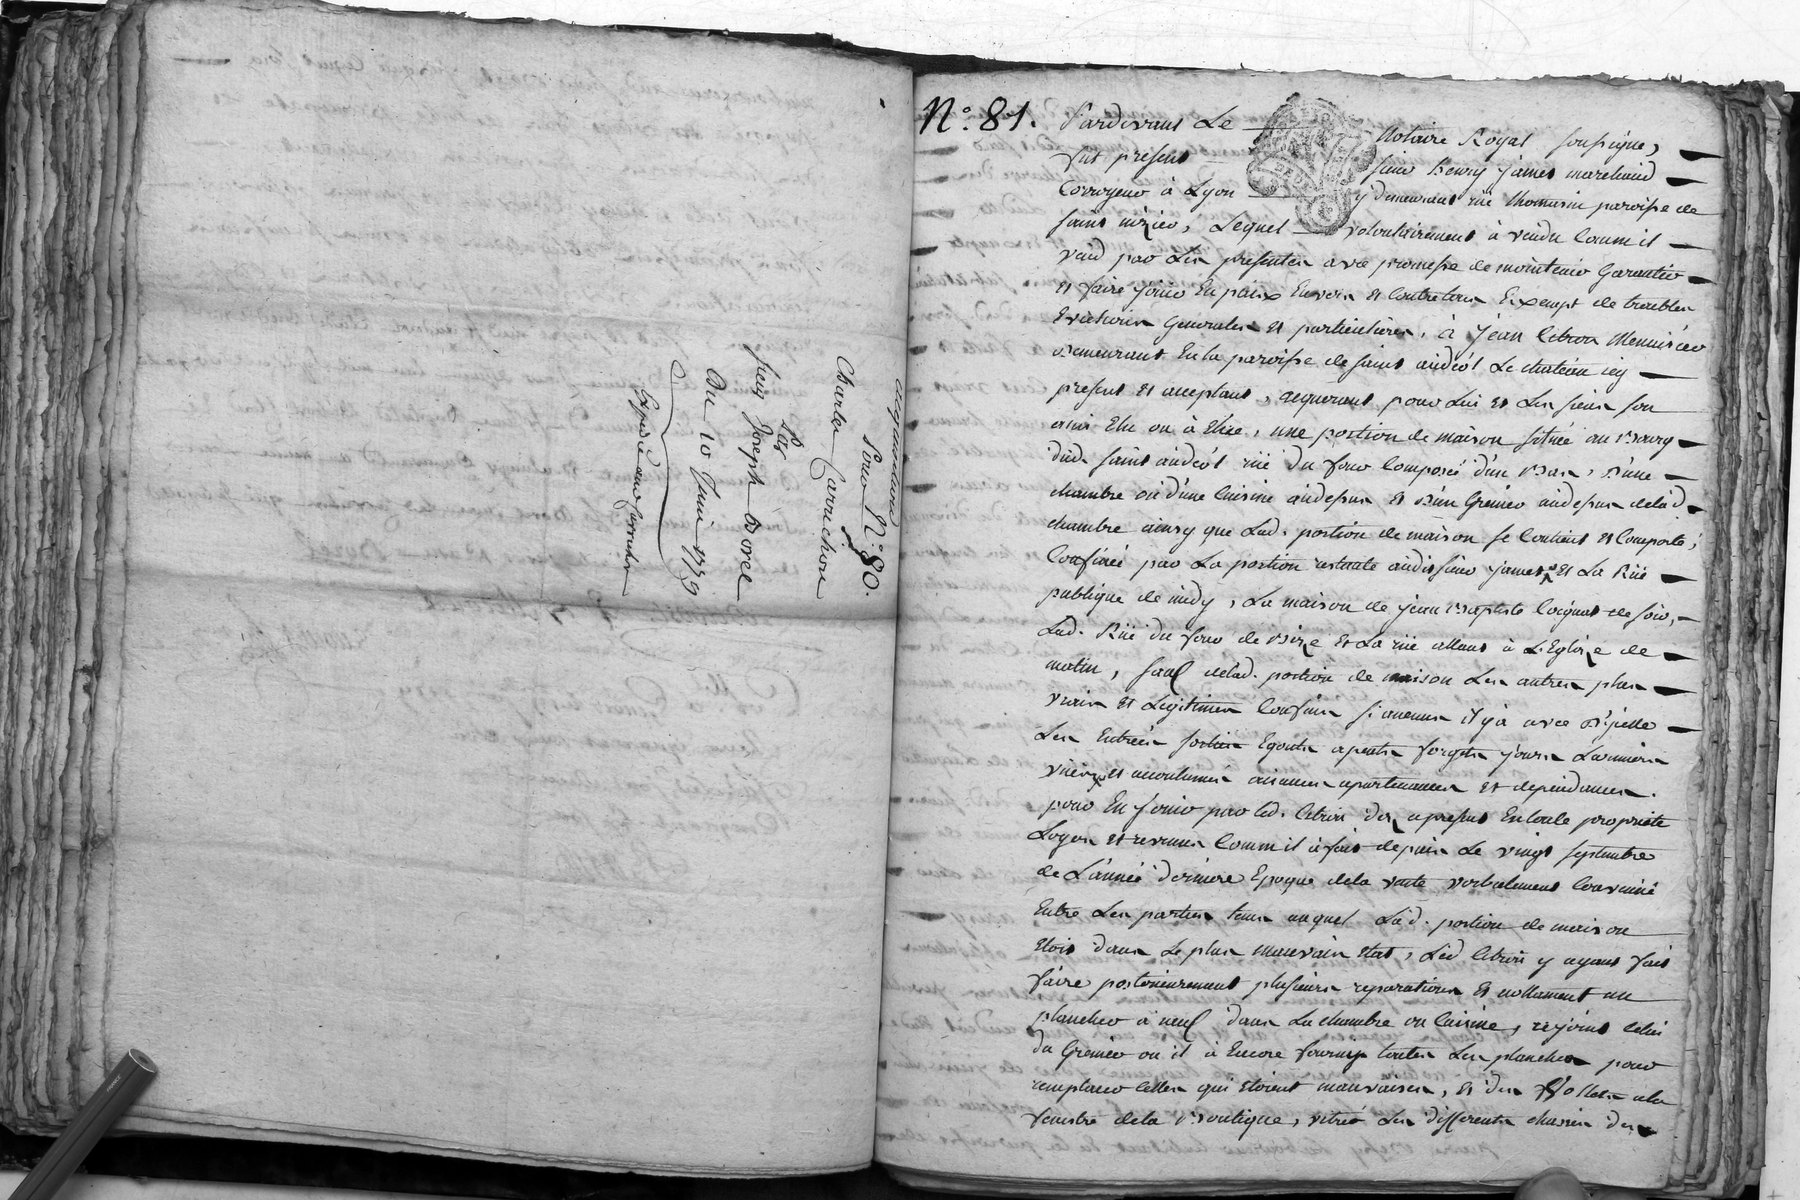 acquittance
Pour N.° 80.
Charles Carrichon
Par
Sieur Joseph Borel
Du 10 Juin 1779
Expédié aud Carrichon
N.° 81. Pardevant Le Notaire Royal soussigné,
fut présent sieur Henry james marchand
Corroyeur à Lyon y demeurant rüe thomassin paroisse de
saint nizier, Lequel volontairement à vendu comm'il
vend par Les presentes avec promesse de maintenir Garantir
et faire joüir En paix Envers et Contre tous Exempt de troubles
Evictions Generales et particulieres, à jean Citron Menuisier
demeurant En la paroisse de saint andéol Le chateau icy
present et acceptant, acquerant pour Lui et Les siens son
amis Elu ou à Elire, une portion de maison située au Bourg
dud. saint andéol rüe du four Composée d'un Bas, d'une
chambre ou d'une Cuisine audessus et d'un Grenier audessus delad.
chambre ainsy que Lad. portion de maison se Contient et Comporte,
Confinée par La portion restante audit sieur james et La Rüe
publique de midy, La maison de jean Baptiste Coignet de soir,
Lad. Rüe du four de Bize et La rüe allant à L'Eglize de
matin, sauf delad. portion de maison Les autres plus
vrais et Legitimes Confins si aucuns il y à avec d'icelle
Les Entrées sorties Egouts apents forgets jours Larmiers
vieux et accoutumés aisances apartenances et dependances.
pour En joüir par led. Citron dez apresent En toute propriété
Loyers et revenus Comm'il à fait depuis Le vingt septembre
de L'année derniere Epoque dela vente verbalement Convenüe
Entre Les parties tems auquel Lad. portion de maison
Etoit dans Le plus mauvais Etat, Led Citron y ayant fait
faire posterieurement plusieurs reparations Et nottament un
plancher à neuf dans La chambre ou Cuisine, rejoint celui
du Grenier ou il à Encore fourny toutes Les planches pour
remplacer celles qui étoient mauvaises, et des vollets ala
fenetre dela Boutique, vitré Les differents chassis des